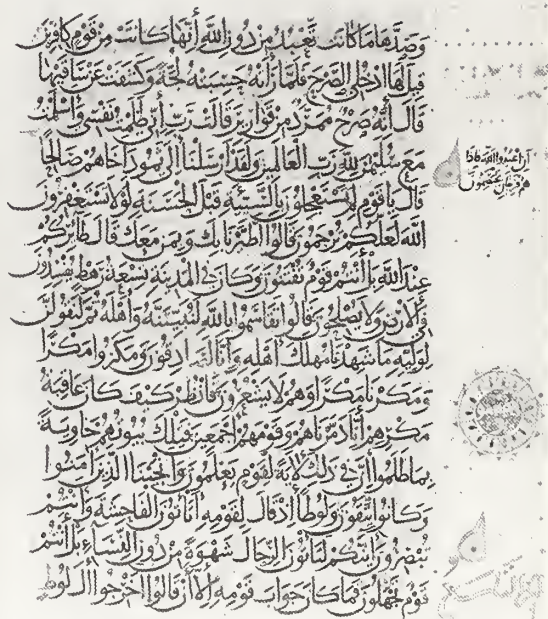 وصدها ما كانت تعبد من دون الله أنها كانت من قوم كافرين
قيل لها ادخلي الصرح فلما رأته حسبته لجة وكشفت عن ساقيها
قال إنه صرح ممرد من قوارير قالت رب إني ظلمت نفسي وأسلمت
مع سليمن لله رب العالمين ولقد أرسلنا إلى ثمود أخاهم صالحا
أن اعبدوا الله فإذا
هم فريقان يختصمون
قال يا قوم لم تستعجلون بالسيئة قبل الحسنة لولا تستغفرون
الله لعلكم ترحمون قالوا اطيرنا بك وبمن معك قال طائركم
عند الله بل أنتم قوم تفتنون وكان في المدينة تسعة رهط يفسدون
في الأرض ولا يصلحون قالوا تقاسموا بالله لنبيتنه وأهله ثم لنقولن
لوليه ما شهدنا مهلك أهله وإنا لصادقون ومكروا مكرا
ومكرنا مكرا وهم لا يشعرون فانظر كيف كان عاقبة
مكرهم أنا دمرناهم وقومهم أجمعين فتلك بيوتهم خاوية
بما ظلموا إن في ذلك لآية لقوم يعلمون وأنجينا الذين آمنوا
وكانوا يتقون ولوطا إذ قال لقومه أتأتون الفاحشة وأنتم
تبصرون أئنكم لتأتون الرجال شهوة من دون النساء بل أنتم
قوم تجهلون فما كان جواب قومه إلا أن قالوا أخرجوا آل لوط